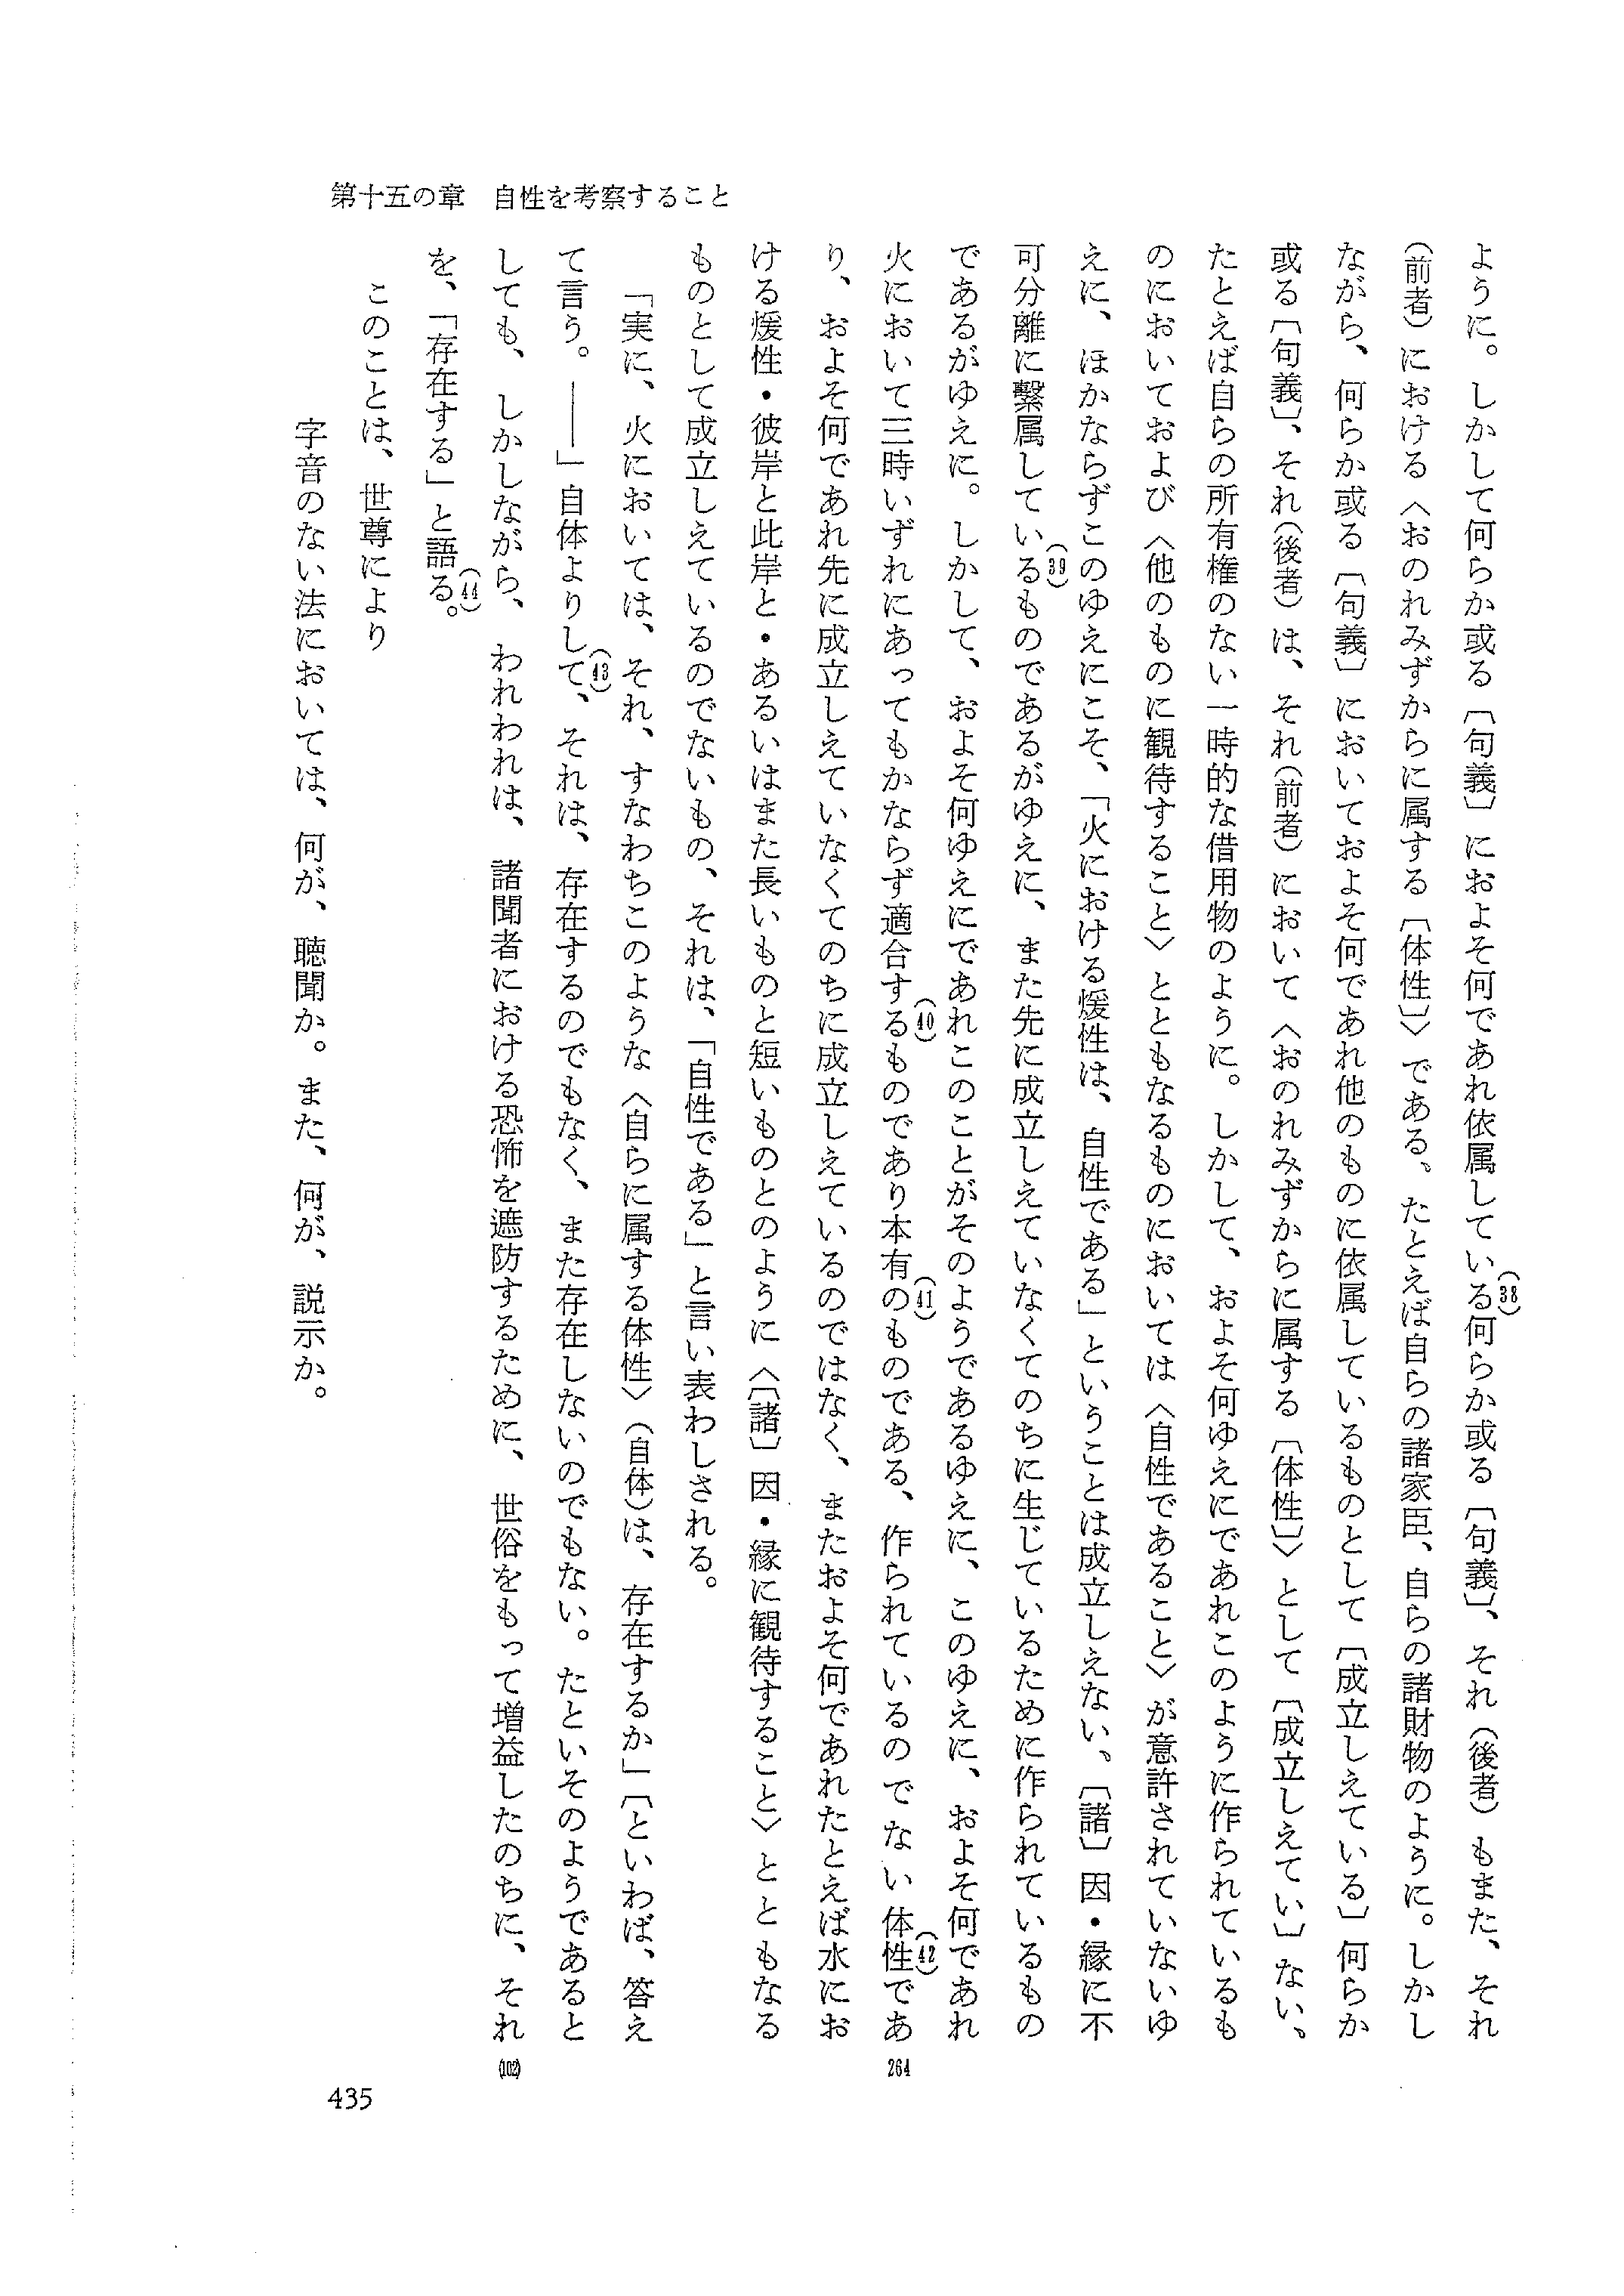 第十五の章　自性を考察すること
ように。しかして何らか或る〔句義〕におよそ何であれ依属している(38)何らか或る〔句義〕、それ（後者）もまた、それ
（前者）における〈おのれみずからに属する〔体性〕〉である、たとえば自らの諸家臣、自らの諸財物のように。しかし
ながら、何らか或る〔句義〕においておよそ何であれ他のものに依属しているものとして〔成立しえている〕何らか
或る〔句義〕、それ（後者）は、それ（前者）において〈おのれみずからに属する〔体性〕〉として〔成立しえてい〕ない、
たとえば自らの所有権のない一時的な借用物のように。しかして、およそ何ゆえにであれこのように作られているも
のにおいておよび〈他のものに観待すること〉とともなるものにおいては〈自性であること〉が意許されていないゆ
えに、ほかならずこのゆえにこそ、「火における煖性は、自性である」ということは成立しえない、〔諸〕因・縁に不
可分離に繫属している(39)ものであるがゆえに、また先に成立しえていなくてのちに生じているために作られているもの
であるがゆえに。しかして、およそ何ゆえにであれこのことがそのようであるゆえに、このゆえに、およそ何であれ
火において三時いずれにあってもかならず適合する(40)ものであり本有の(41)ものである、作られているのでない体性(42)であ
り、およそ何であれ先に成立しえていなくてのちに成立しえているのではなく、またおよそ何であれたとえば水にお
ける煖性・彼岸と此岸と・あるいはまた長いものと短いものとのように〈〔諸〕因・縁に観待すること〉とともなる
ものとして成立しえているのでないもの、それは、「自性である」と言い表わしされる。
「実に、火においては、それ、すなわちこのような〈自らに属する体性〉（自体）は、存在するか」〔といわば、答え
て言う。――」自体よりして(43)、それは、存在するのでもなく、また存在しないのでもない。たといそのようであると
しても、しかしながら、われわれは、諸聞者における恐怖を遮防するために、世俗をもって増益したのちに、それ
を、「存在する」と語る(44)。
このことは、世尊により
字音のない法においては、何が、聴聞か。また、何が、説示か。
264
(102)
435